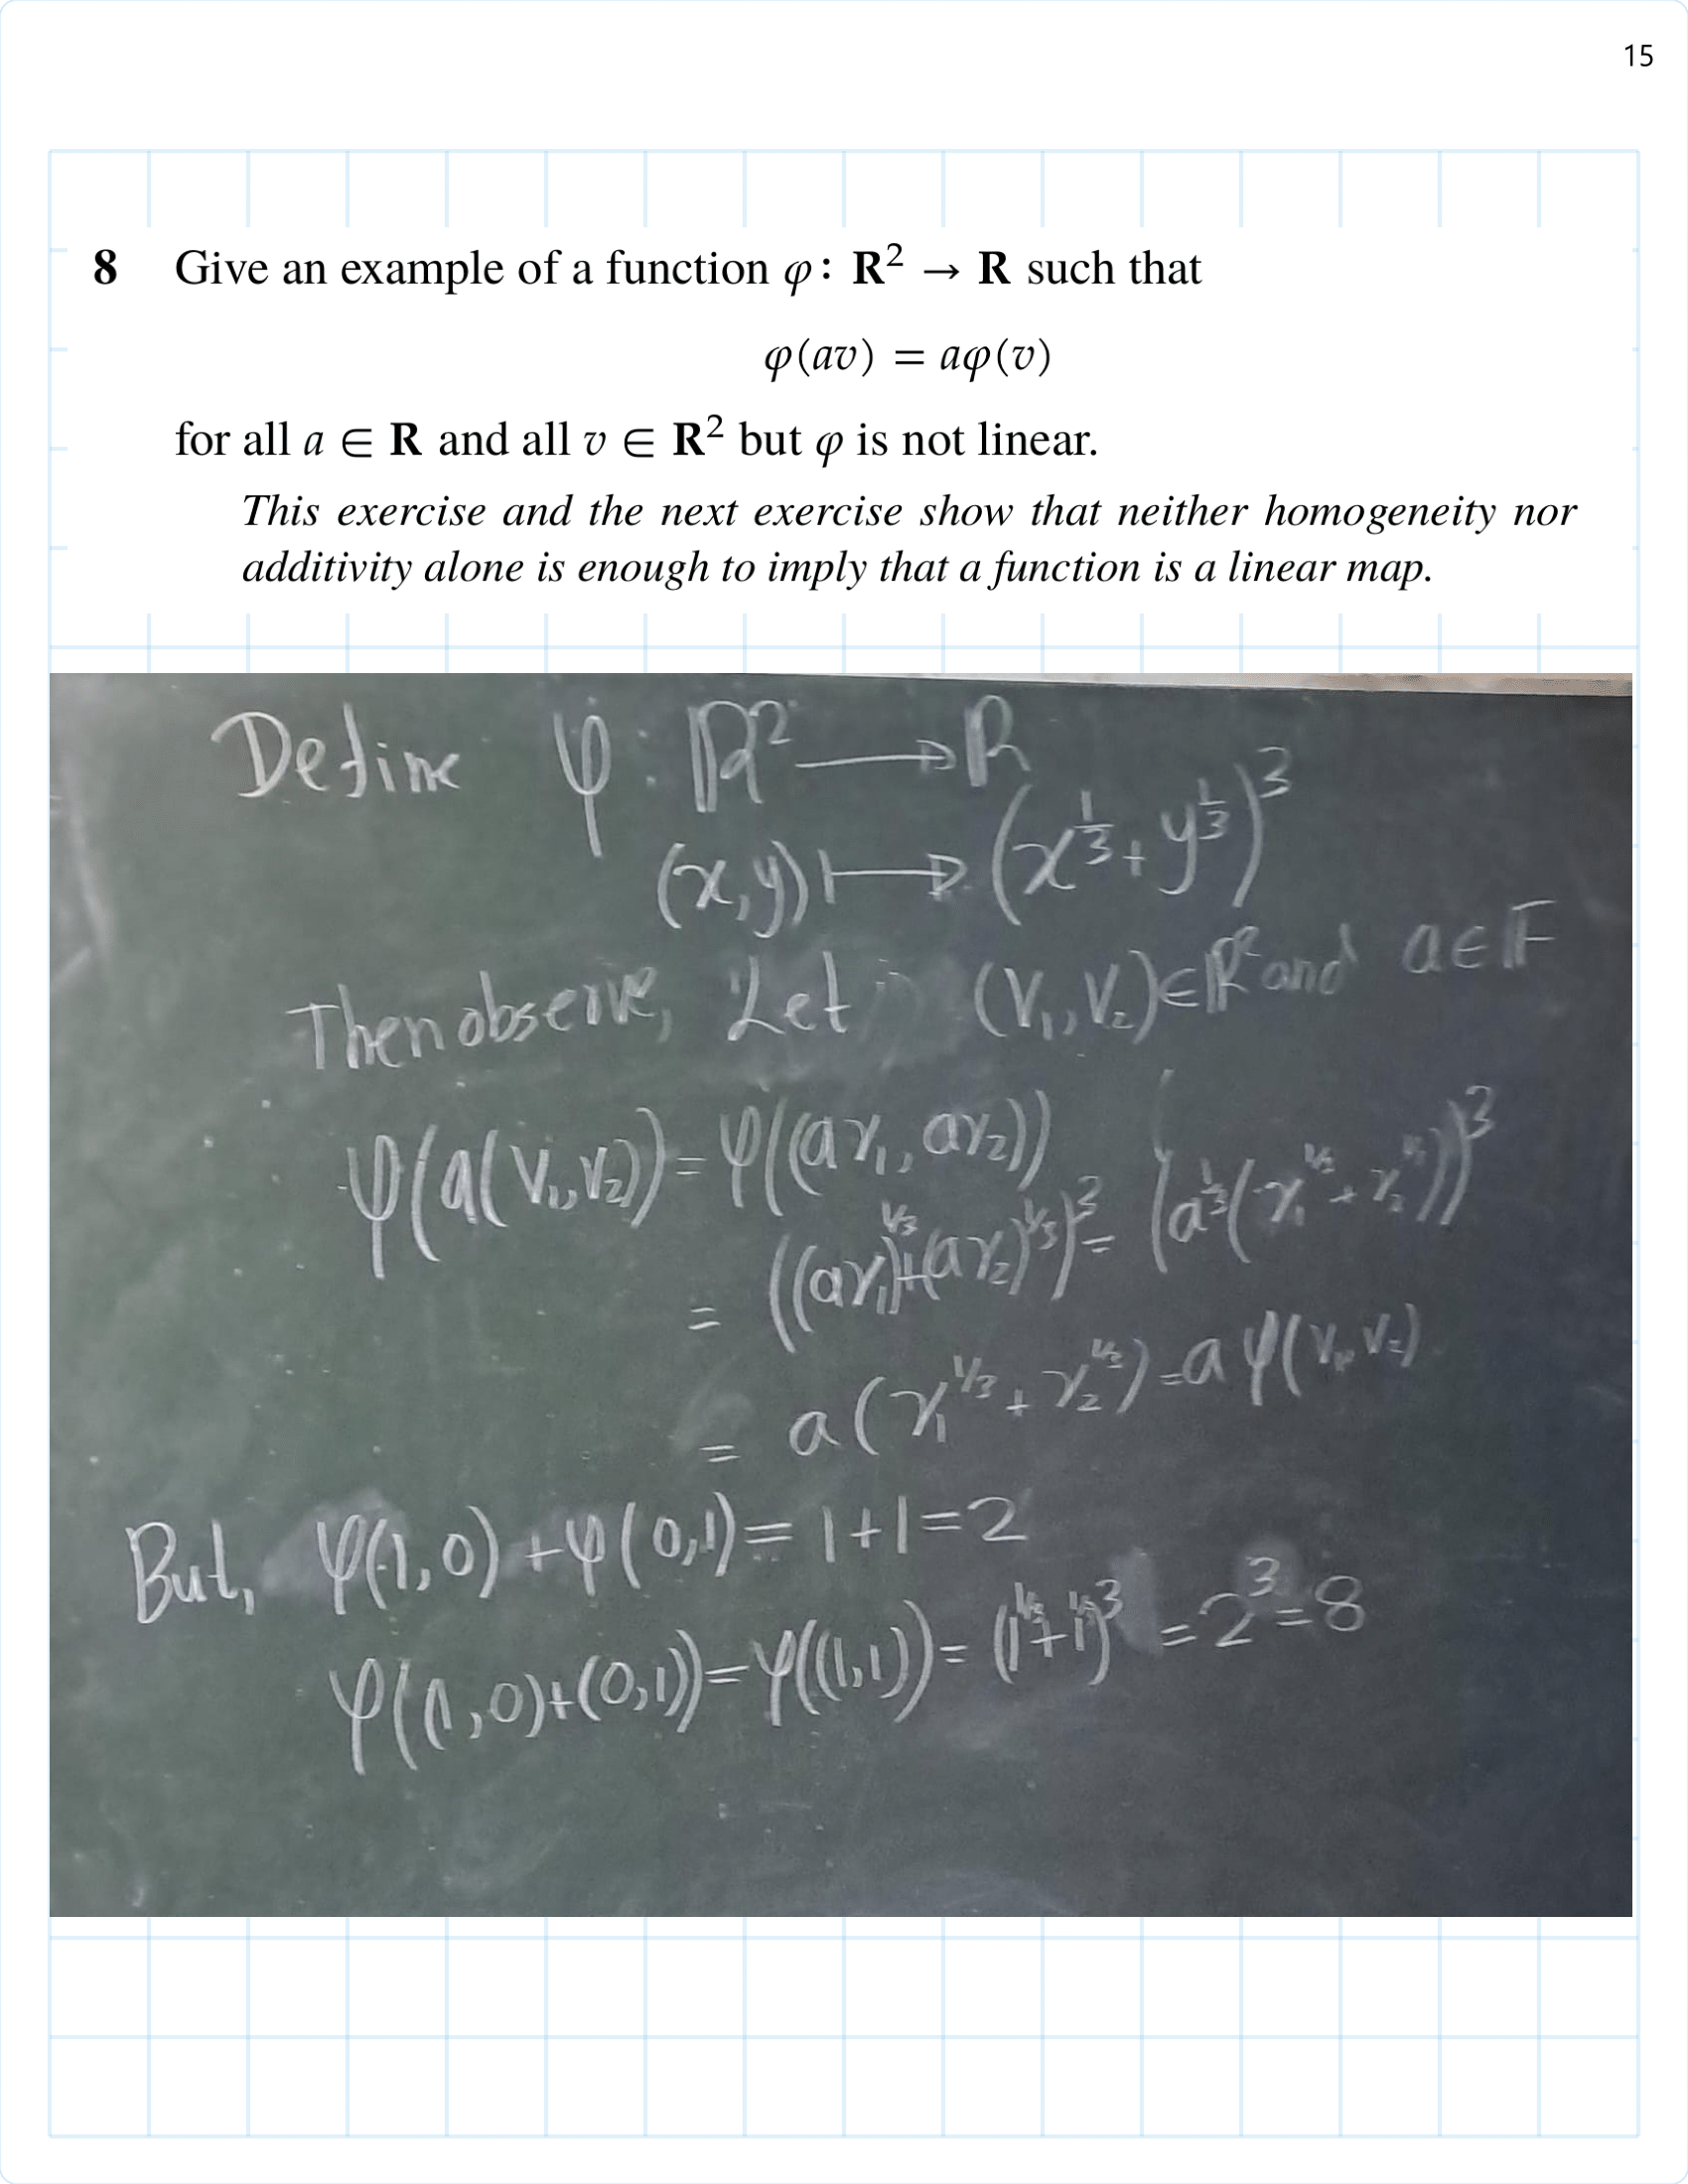 15
8 Give an example of a function φ : R² → R such that
φ(av) = aφ(v)
for all a ∈ R and all v ∈ R² but φ is not linear.
This exercise and the next exercise show that neither homogeneity nor
additivity alone is enough to imply that a function is a linear map.
Define φ : ℝ² → ℝ
(x,y) ↦ (x^{1/3} + y^{1/3})³
Then observe, Let (V₁,V₂) ∈ ℝ² and a ∈ F
φ(a(V₁,V₂)) = φ((ax₁, ax₂))
= ((ax₁)^{1/3} + (ax₂)^{1/3})³ = (a^{1/3}(x₁^{1/3} + x₂^{1/3}))³
= a(x₁^{1/3} + x₂^{1/3}) = aφ(V₁,V₂)
But, φ(1,0) + φ(0,1) = 1+1=2
φ((1,0)+(0,1)) = φ((1,1)) = (1^{1/3} + 1^{1/3})³ = 2³ = 8